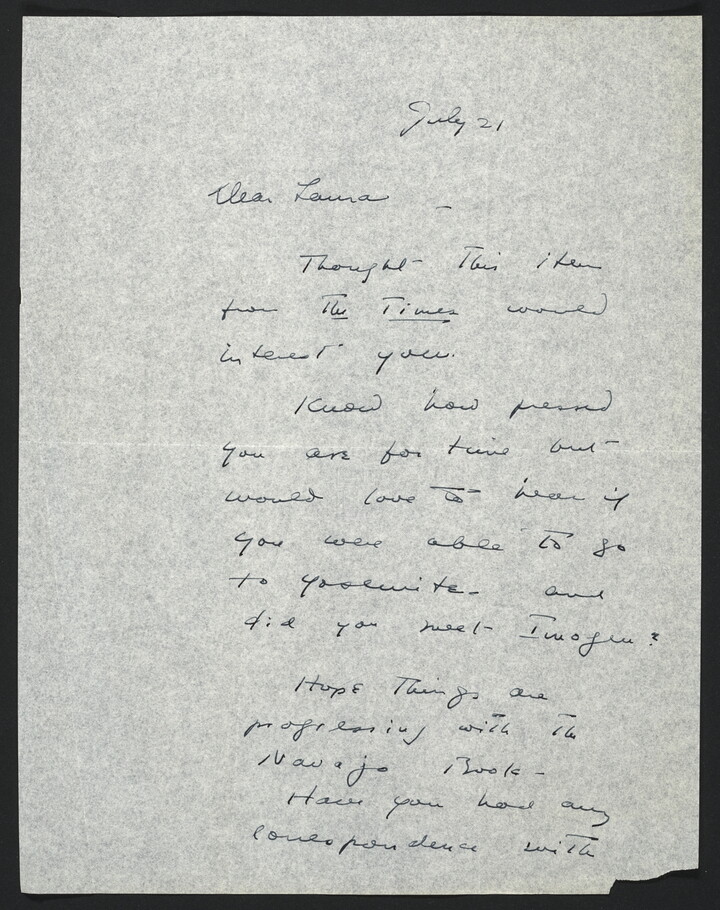 July 21
Dear Laura -
Thought This item
from The Times would
interest you.
Know how pressed
you are for time but
would love to hear if
you were able to go
to Yosemite - and
did you meet Imogen?
Hope Things are
progressing with the
Navajo Book -
Have you had any
correspondence with